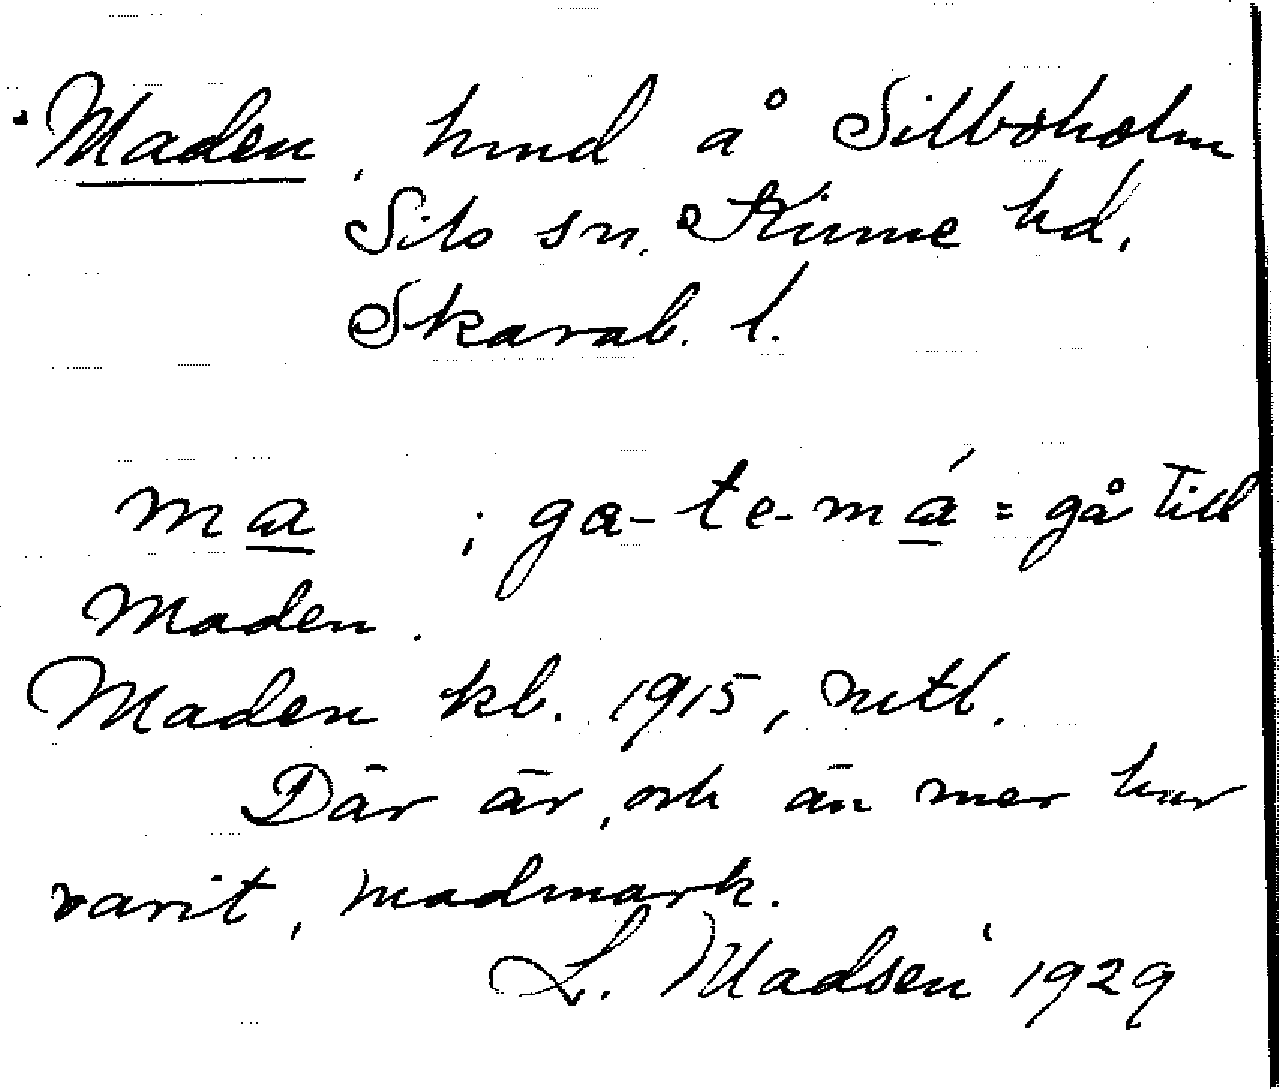 Maden, hmd å Silboholm
Sils sn. Kinne hd,
Skarab. l.
ma ; ga-te-má = gå till
Maden.
Maden kb. 1915, mtl.
Där är, och än mer har
varit, madmark.
L. Madsen 1929